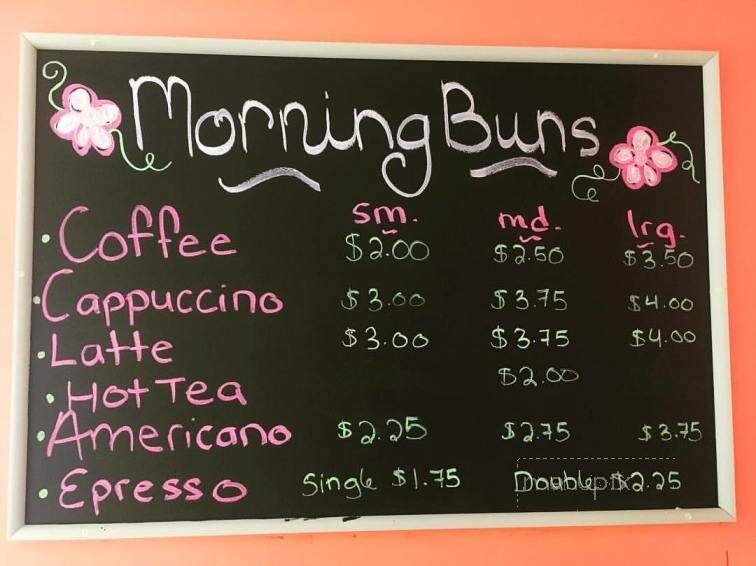 Morning Buns
sm. md. lrg.
• Coffee $2.00 $2.50 $3.50
• Cappuccino $3.00 $3.75 $4.00
• Latte $3.00 $3.75 $4.00
• Hot Tea $2.00
• Americano $2.25 $2.75 $3.75
• Epresso Single $1.75 Double $2.25